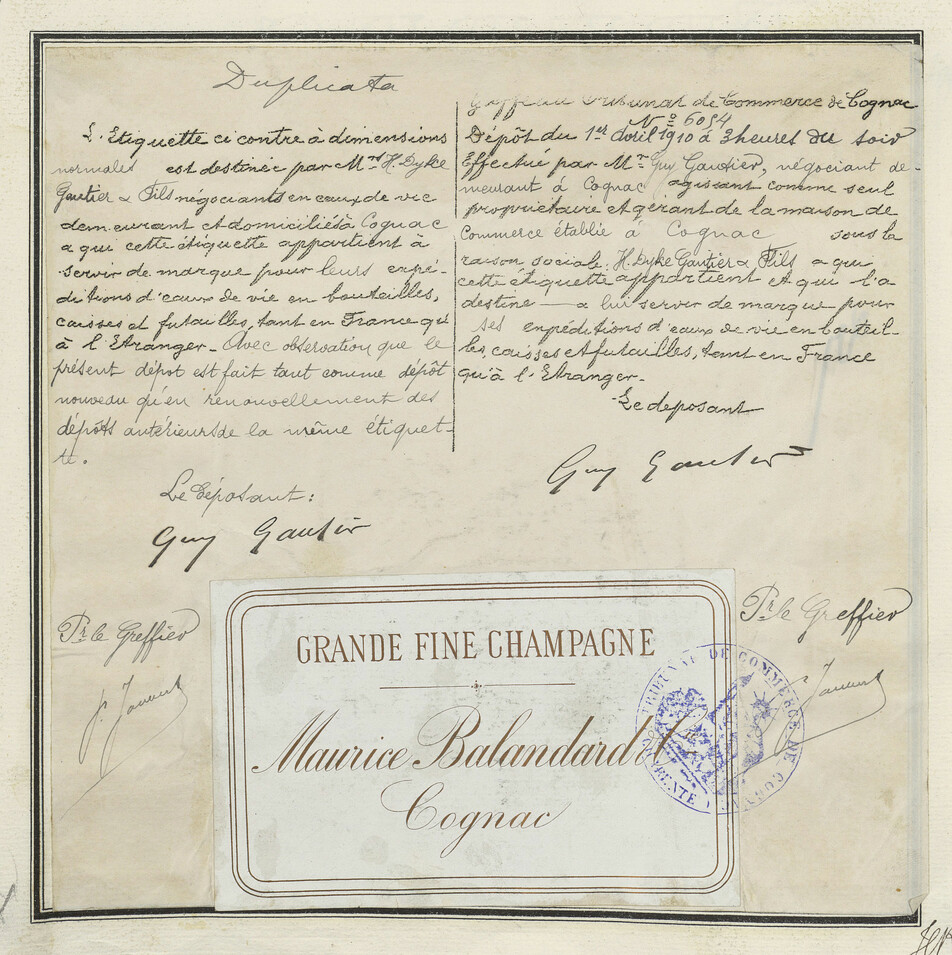 Duplicata
L'Etiquette ci contre à dimensions
normales est destinée par Mrs H. Dyke
Gautier & Fils négociants en eaux de vie
demeurant et domiciliés à Cognac
a qui cette étiquette appartient à
servir de marque pour leurs expé-
ditions d'eaux de vie en bouteilles,
caisses et futailles, tant en France qu'
à l'Etranger - Avec observation que le
présent dépot est fait tant comme dépôt
nouveau qu'en renouvellement des
dépôts antérieurs de la même étiquet-
te.
Le Déposant :
Guy Gautier
Greffe du Tribunal de Commerce de Cognac
No 6054
Dépôt du 1er Avril 1910 à 3 heures du soir
Effectué par Mr Guy Gautier, négociant de-
meurant à Cognac agissant comme seul
propriétaire et gérant de la maison de
Commerce établie à Cognac sous la
raison sociale H. Dyke Gautier & Fils a qui
cette étiquette appartient et qui l'a
destine — a lui servir de marque pour
ses expéditions d'eaux de vie en bouteil-
les, caisses et futailles, tant en France
qu'à l'Etranger.-
Le deposant
Guy Gautier
Pr. le Greffier
Pr. le Greffier
GRANDE FINE CHAMPAGNE
Maurice Balandard
Cognac
TRIBUNAL DE COMMERCE DE COGNAC